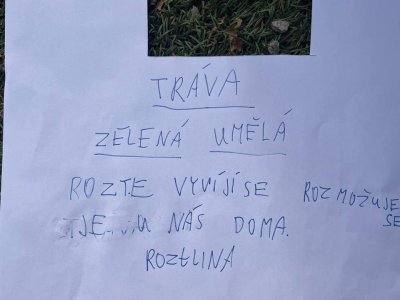 TRÁVA
ZĚLENÁ UMĚLÁ
ROZTE VYVÍJÍ SE ROZMOŽUJE
SE
JE U NÁS DOMA.
ROZTLINA